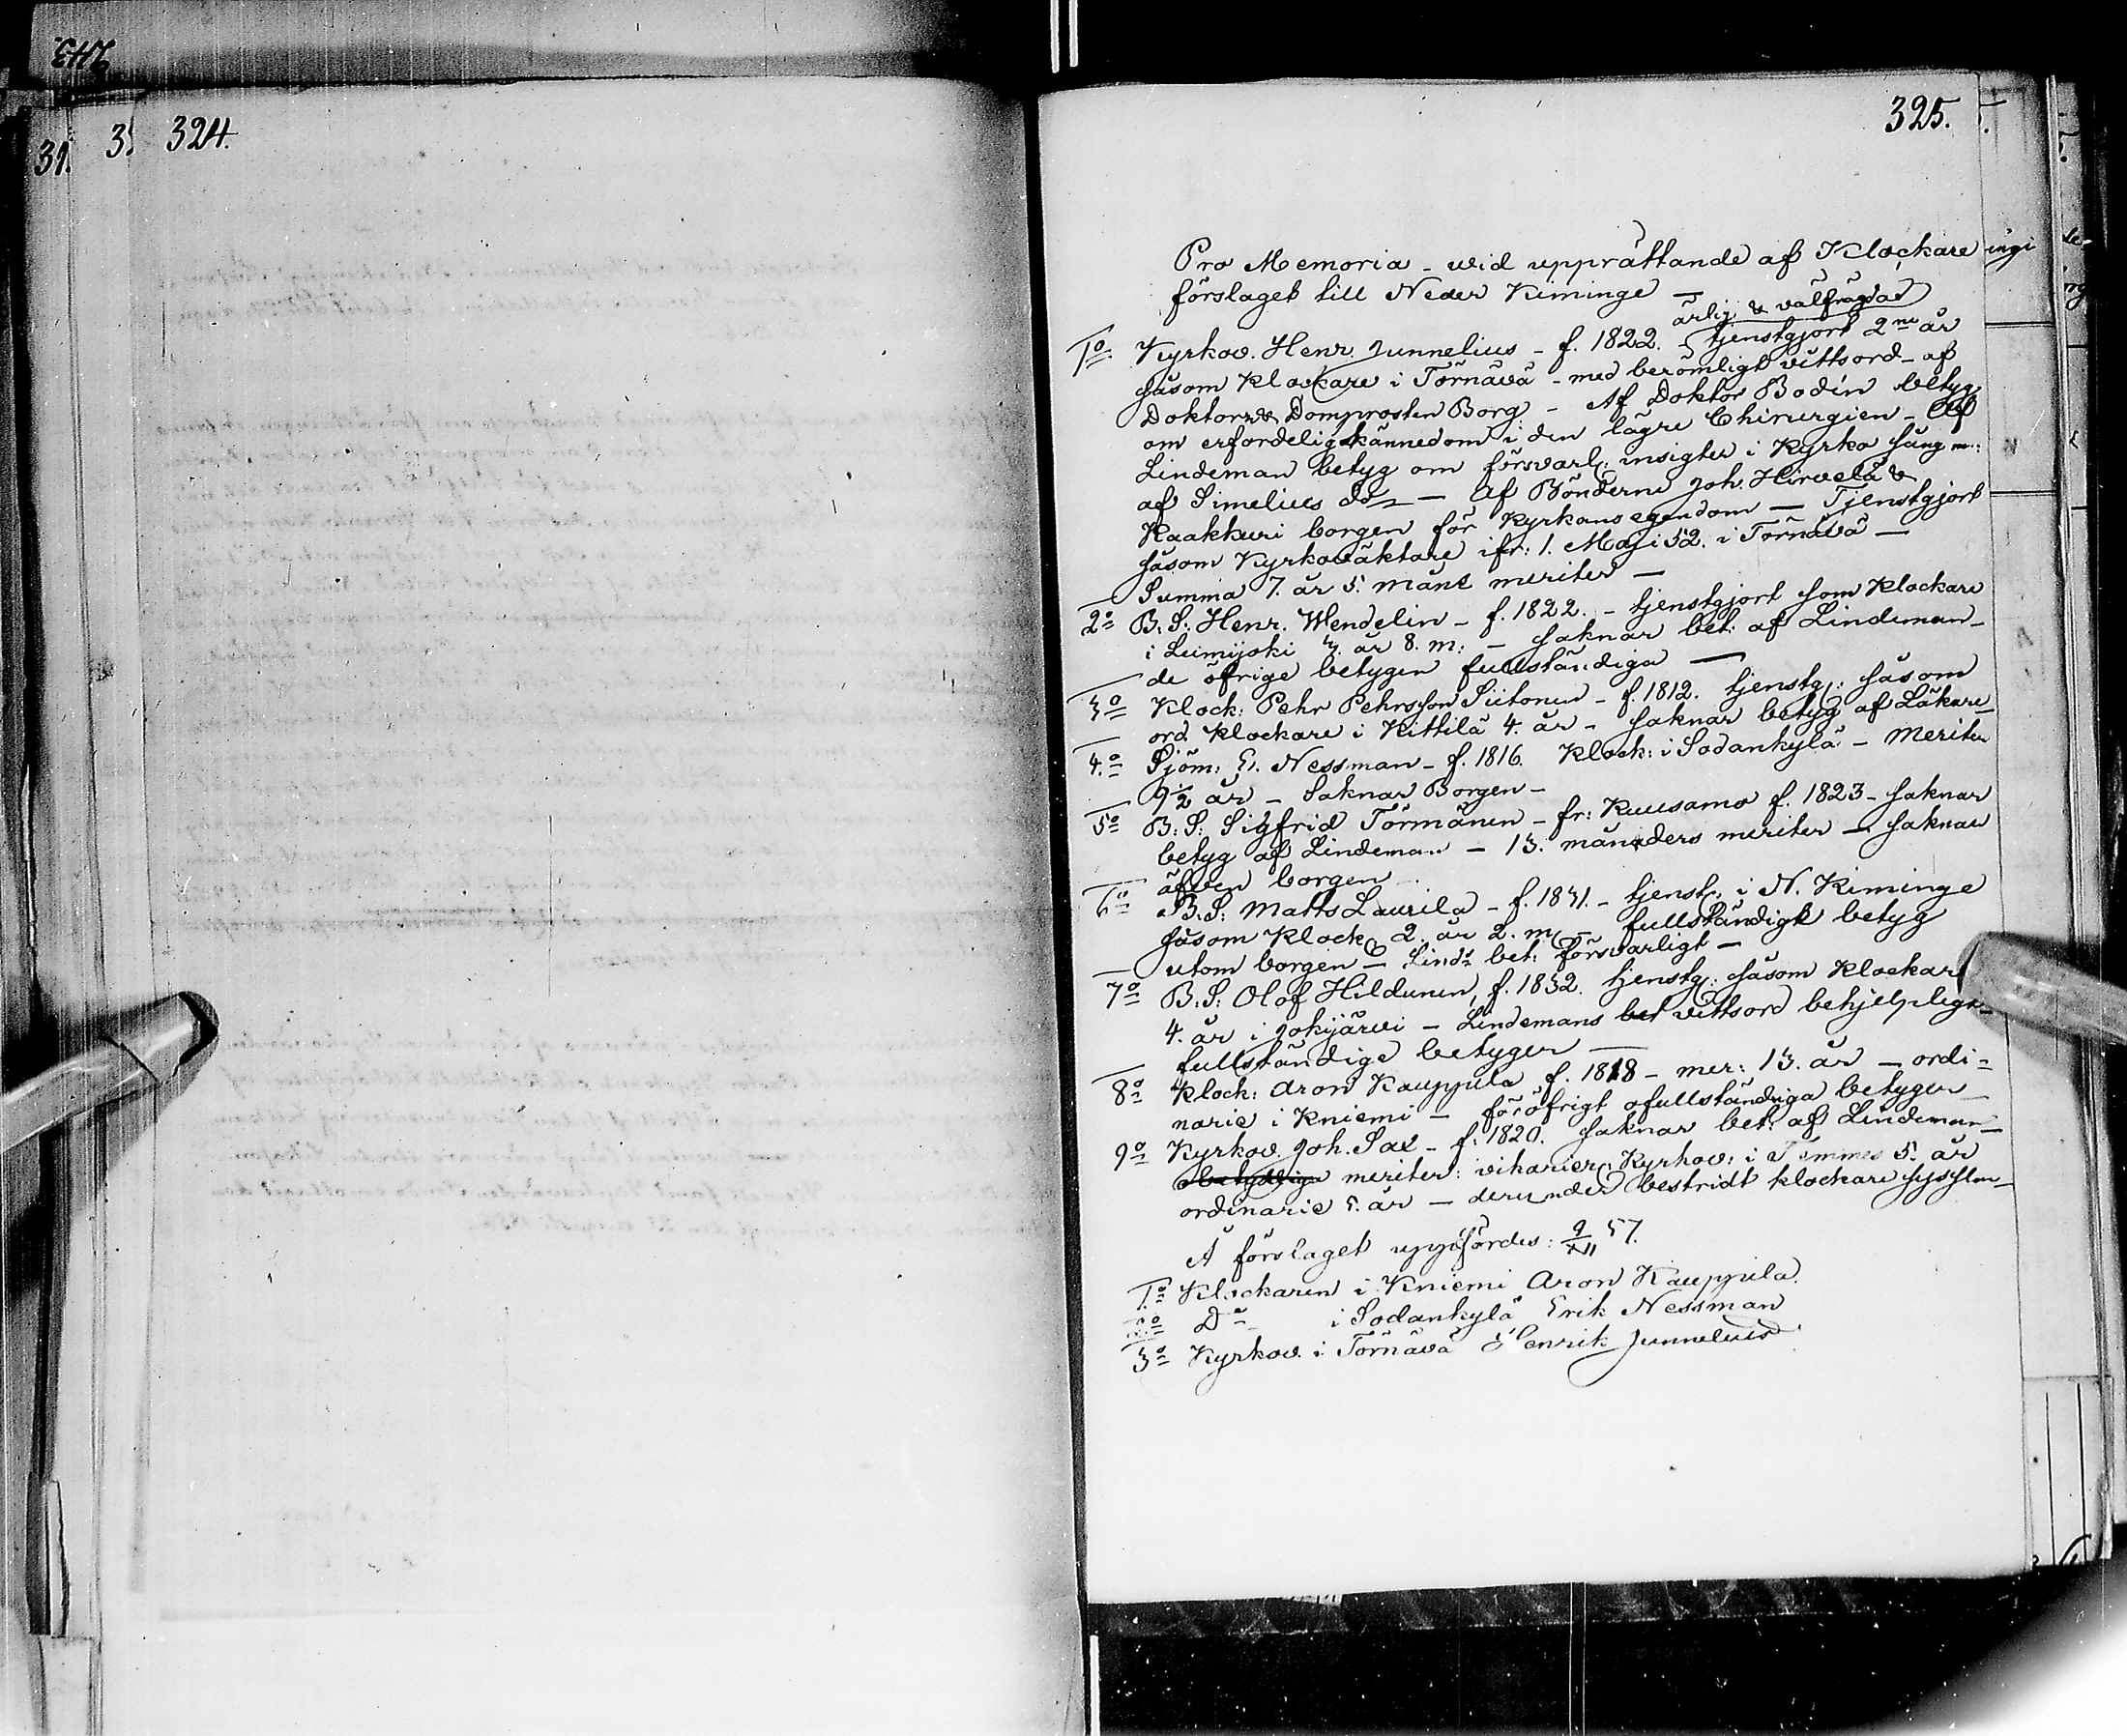 324.
325.
Pro Memoria - vid upprättande af Klockare
förslaget till Neder Kiminge —
ärlig & välfrägdad
1o Kyrkov. Henr. Junnelius - f. 1822. tjenstgjort 2ne år
såsom Klockare i Törnävä - med berömligt vittsord - af
Doktorn & Domprosten Borg - Af Doktor Bodin betyg
om erfordelig kännedom i den lägre Chirurgien - Af
Lindeman betyg om försvarl: insigter i Kyrko sång m:
af Simelius do — Af Bönderne Joh. Hirvelä &
Kaakkuri borgen för Kyrkans egendom — Tjenstgjort
såsom Kyrkoväktare ifr: 1. Maji 52. i Törnävä —
Summa 7. år 5. måns meriter —
2o B: S: Henr. Wendelin - f. 1822. - tjenstgjort som Klockare
i Lumijoki 3. år 8. m: - saknar bet: af Lindeman -
de öfrige betygen fullständiga —
3o Klock: Pehr Pehrsson Siitonen - f. 1812. tjenstg: såsom
ord. Klockare i Kittilä 4. år - saknar betyg af Läkare -
4.o Sjöm: E. Nessman - f. 1816. Klock: i Sodankylä - meriter
9 1/2 år - Saknar Borgen -
5o B: S: Sigfrid Törmänen - fr: Kuusamo f. 1823 - saknar
betyg af Lindeman - 13. månaders meriter - saknar
äfven borgen
6o B: S: Matts Laurila - f. 1831. - tjenstg: i N. Kiminge
såsom Klock: 2. år 2. m - fullständigt betyg
utom borgen - Linds bet: försvarligt -
7o B. S: Olof Hildunen, f. 1832. tjenstg: såsom Klockar
4. år i Jokijärvi - Lindemans bet vittsord behjelpliga -
fullständige betyger —
8o Klock: Aron Kauppila f. 1818 - mer: 13. år - ordi-
narie i Kniemi - föröfrigt ofullständiga betyger
9o Kyrkov. Joh. Sax - f. 1820. saknar bet: af Lindeman -
obetydliga meriter: vikarier: Kyrkov: i Temmes 5. år
ordinarie 5. år - derunder bestridt klockare sysslan -
Å förslaget uppfördes: 9/XII 57.
1.o Klockaren i Kniemi Aron Kauppila.
2o Do i Sodankylä Erik Nessman
3o Kyrkov. i Törnävä Henrik Junnelius